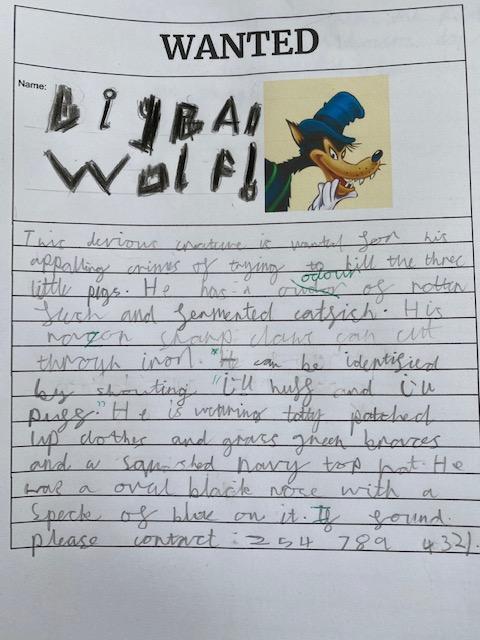 WANTED
Name:
Big BAd
Wolf!
This devious creature is wanted for his
appalling crimes of trying to kill the three
odour
little pigs. He has a oudor of rotten
flesh and fermented catfish. His
razon sharp claws can cut
through iron. *He can be identified
by shouting "i'll huff and i'll
puff." He is wearing tatty patched
up clothes and grass green braces
and a squished navy top hat. He
has a oval black nose with a
speck of blue on it. If found.
please contact : 254 789 4321.